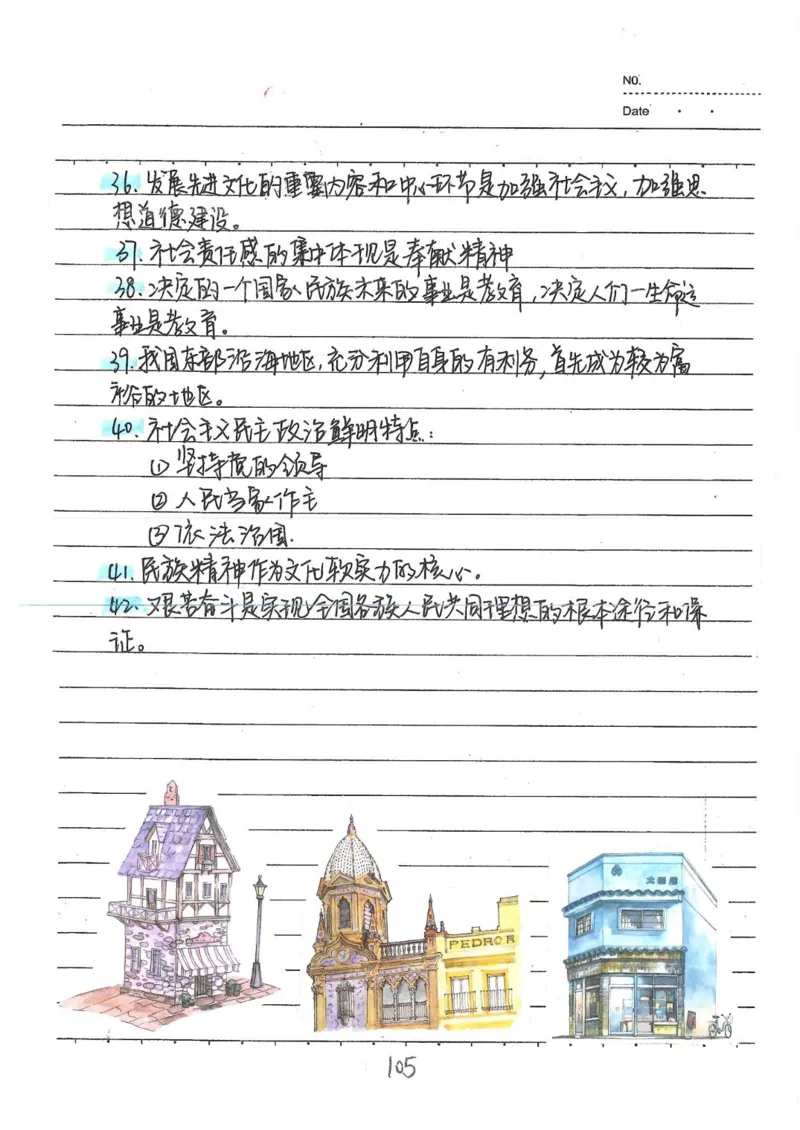 NO.
Date
36. 发展先进文化的重要内容和中心环节是加强社会主义,加强思
想道德建设。
37. 社会责任感的集中体现是奉献精神
38. 决定的一个国家民族未来的事业是教育,决定人们一生命运
事业是教育。
39. 我国东部沿海地区,充分利用自身的有利务,首先成为较为富
裕的地区。
40. 社会主义民主政治鲜明特点:
① 坚持党的领导
② 人民当家作主
③ 依法治国.
41. 民族精神作为文化软实力的核心。
42. 艰苦奋斗是实现全国各族人民共同理想的根本途径和保
证。
PEDRO R
105